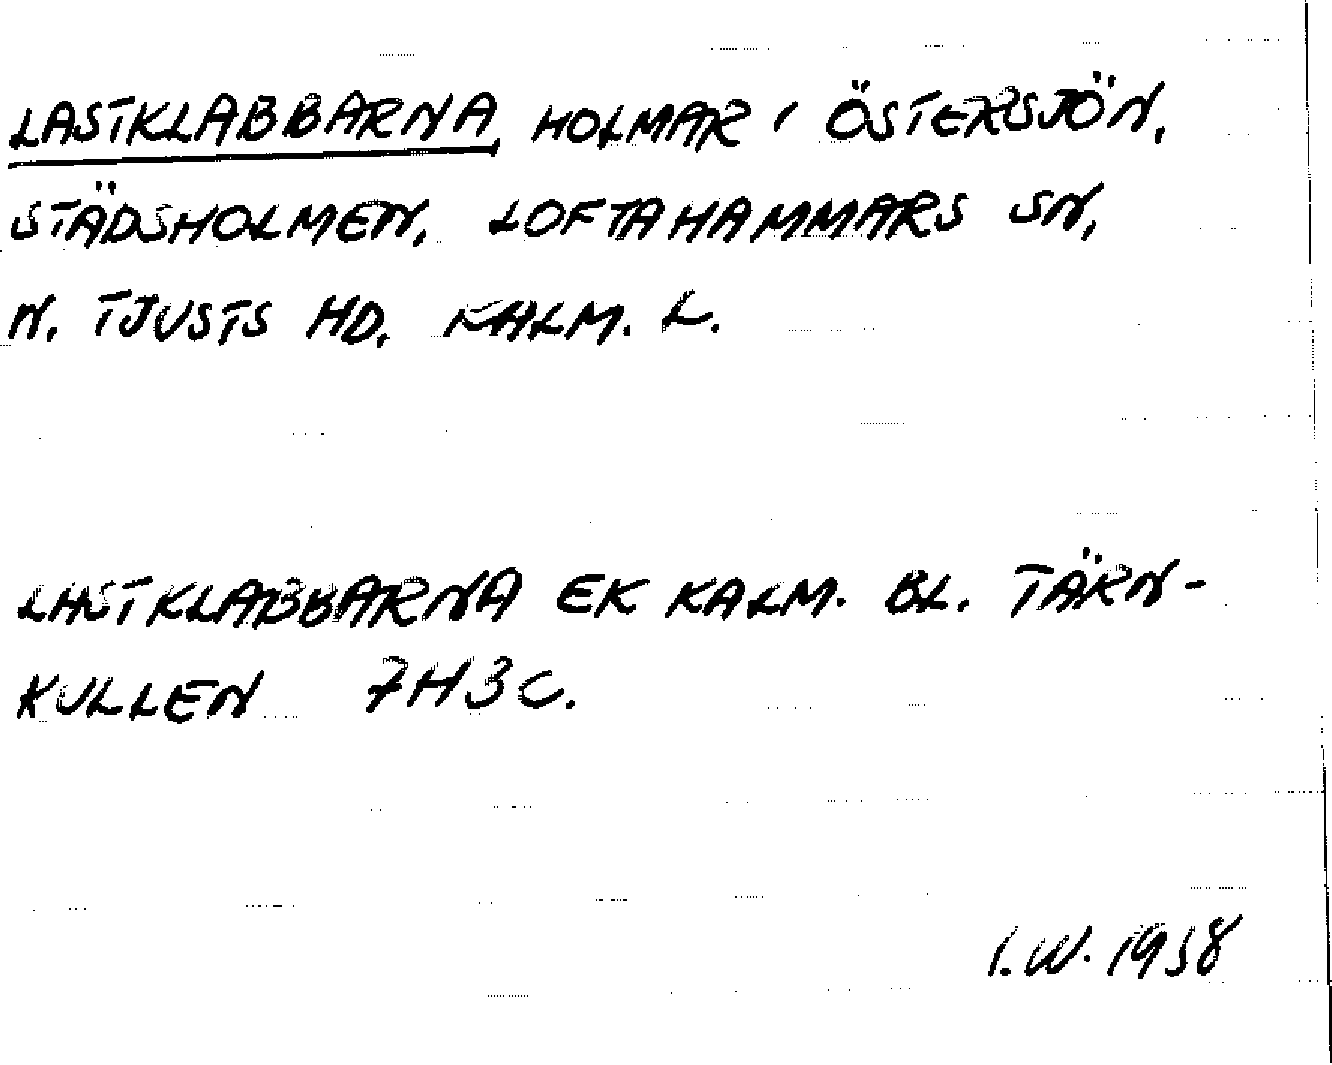 LASTKLABBARNA, HOLMAR I ÖSTERSJÖN,
STÄDSHOLMEN, LOFTAHAMMARS SN,
N. TJUSTS HD. KALM. L.
LASTKLABBARNA EK KALM. BL. TÄRN-
KULLEN 7H3C.
I.W. 1958